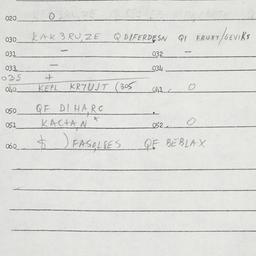 020 0
030 KAK3RUZE QDIFERDESN QI FRUKT/GEVIKS
031 - 032 -
033 - 034
035 +
040 KEPL KR7UJT (305 041 0
050 QF DIHARC
051 KACTAN 052 0
060 $ ) FASQLEES QF BEBLAX